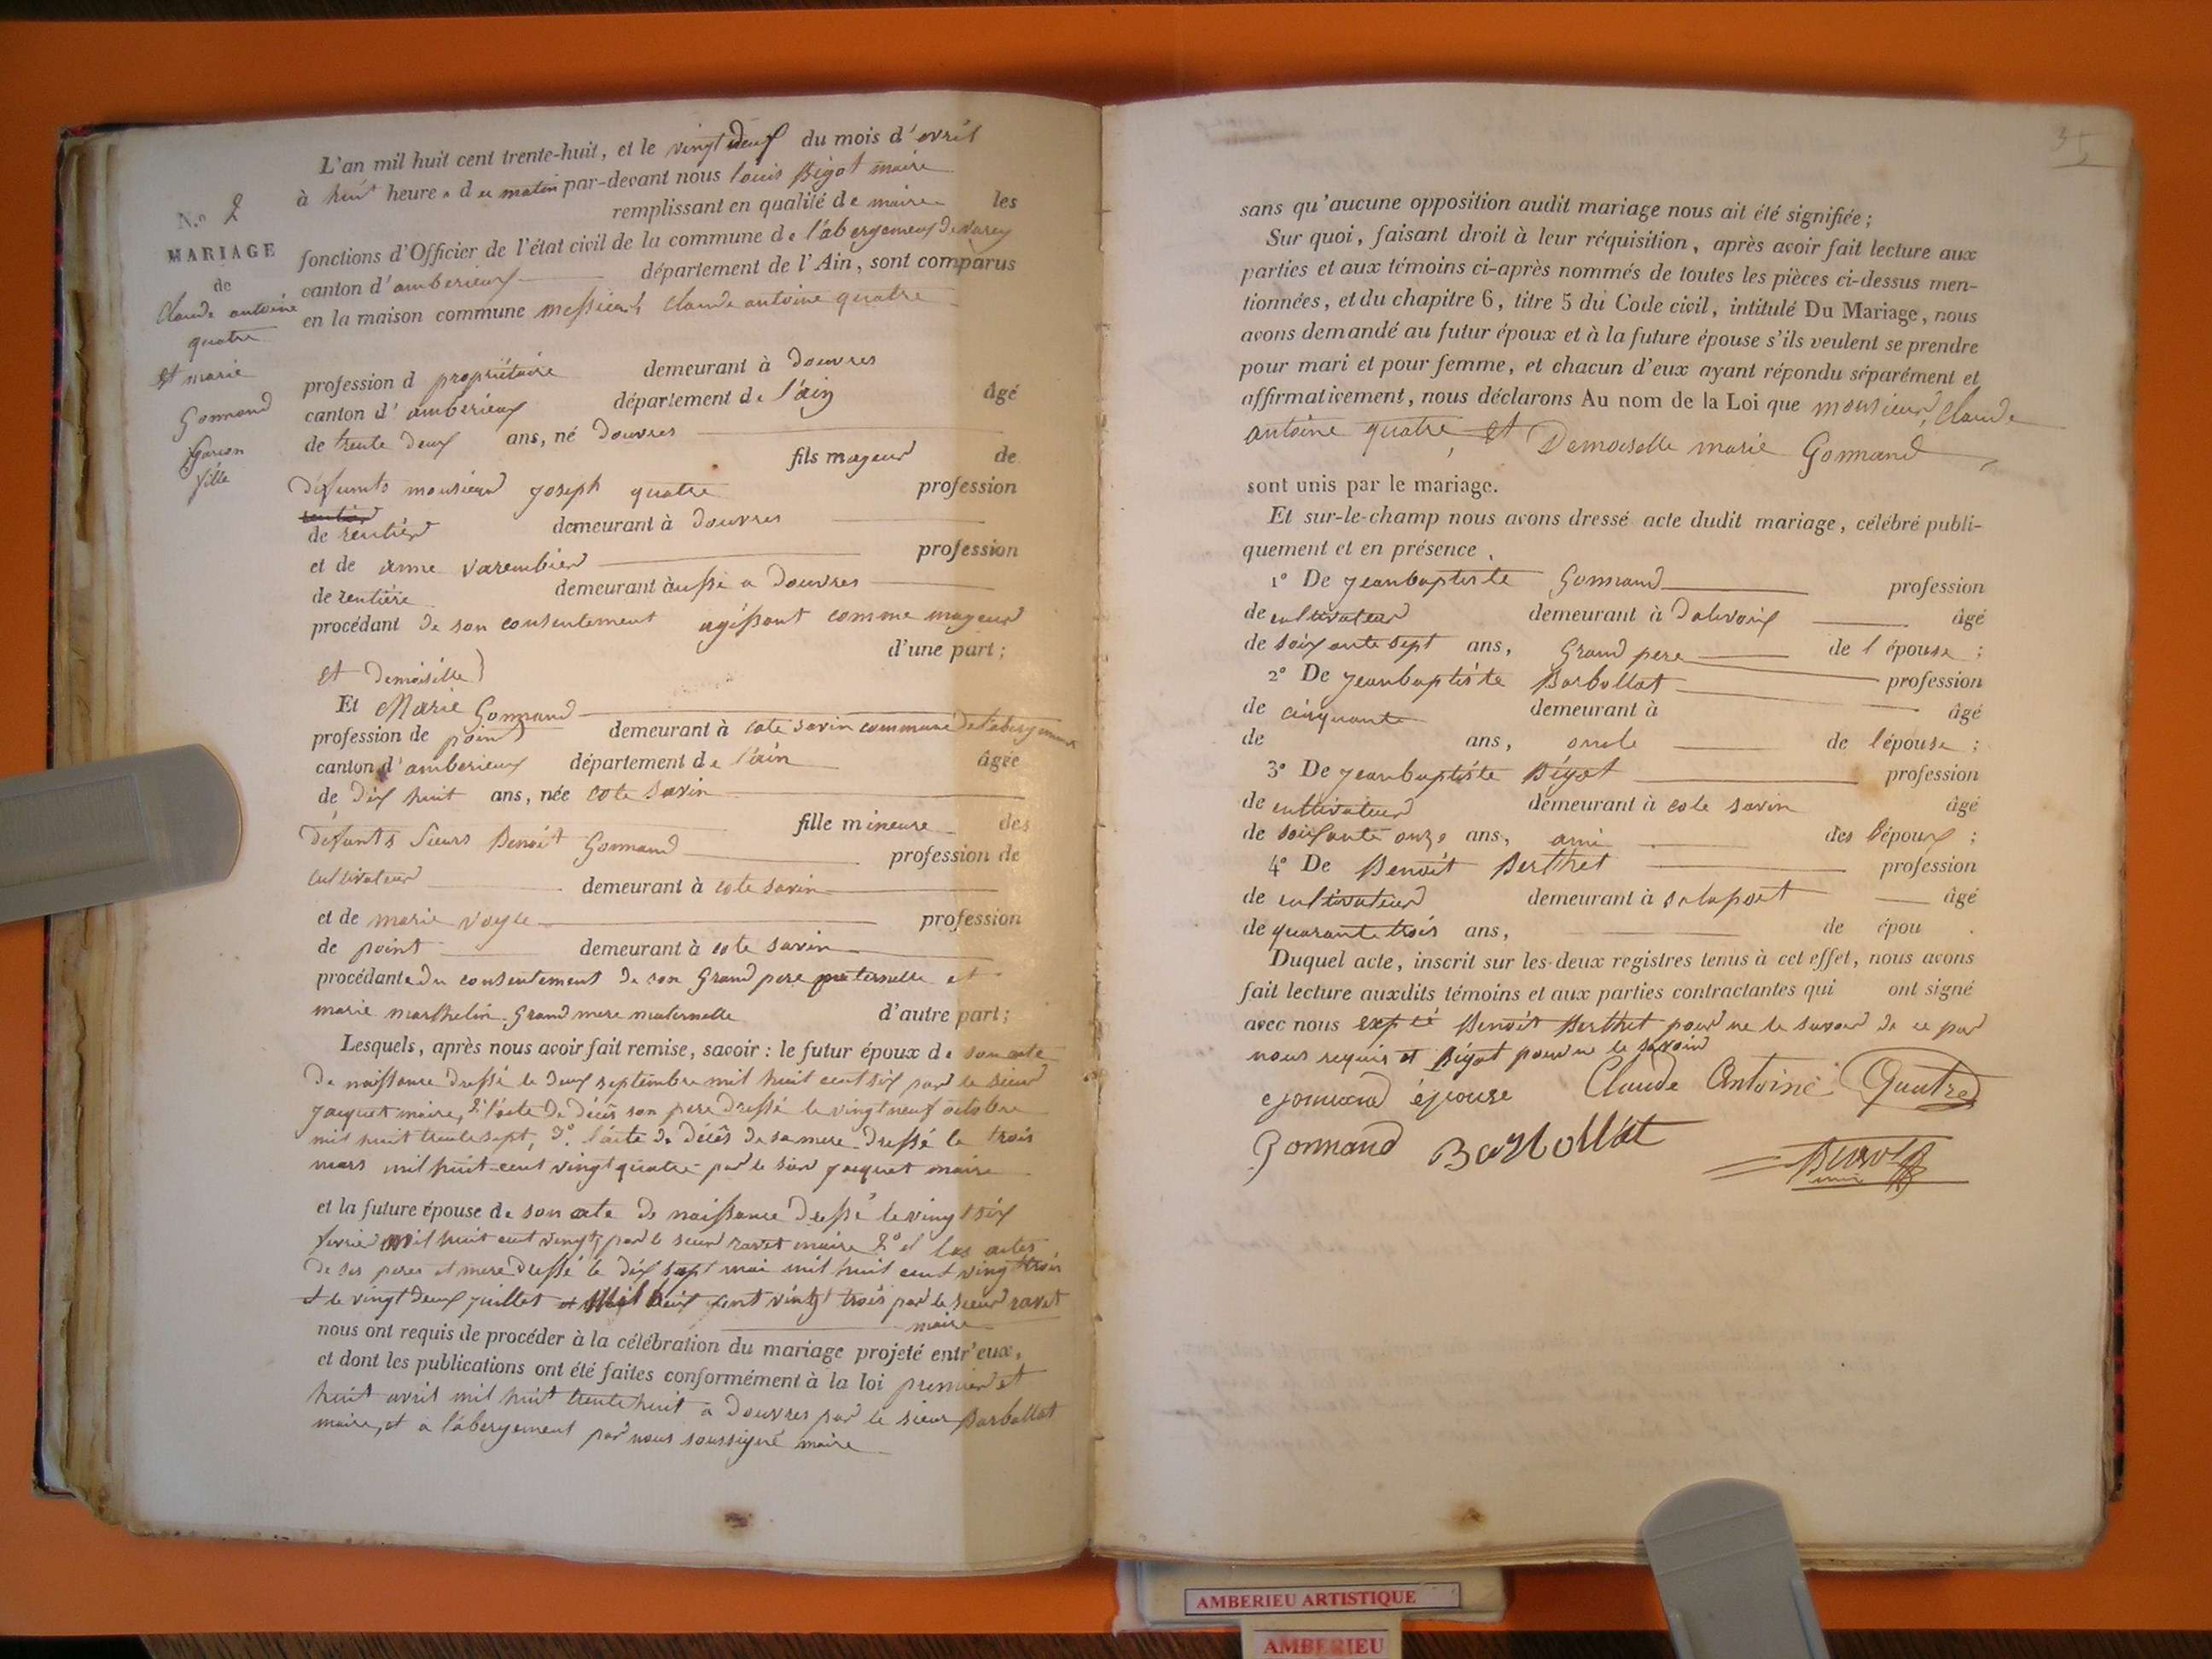 L'an mil huit cent trente-huit, et le vingt deux du mois d'avril
à huit heures du matin par-devant nous louis Bigot maire
remplissant en qualité de maire les
fonctions d'Officier de l'état civil de la commune de l'abergement de varey
canton d'amberieux département de l'Ain, sont comparus
en la maison commune messieurs Claude antoine quatre
N.o 2
MARIAGE
de
Claude antoine
quatre
et marie
Gonnand
garson
fille
profession d propriétaire demeurant à Douvres
canton d'amberieux département de l'ain âgé
de trente deux ans, né Douvres
fils mageur de
défunts monsieur joseph quatre profession
rentier
de rentier demeurant à Douvres
et de anne varembier profession
de rentière demeurant àussi a Douvres
procédant de son consentement agissant comme mageur
d'une part;
et demoiselle
Et Marie Gonnand
profession de point demeurant à cote savin commune de l'abergement
canton d'amberieux département de l'ain âgée
de dix huit ans, née cote savin
fille mineure des
défunts sieurs Benoit Gonnand profession de
cultivateur demeurant à cote savin
et de marie voyle profession
de point demeurant à cote savin
procédante du consentement de son Grand pere paternelle et
marie marthelin Grand mere maternelle d'autre part;
Lesquels, après nous avoir fait remise, savoir: le futur époux de son acte
de naissance dressé le deux septembre mil huit cent six par le sieur
jacquet maire, 2° l'acte de décès son pere dressé le vingt neuf octobre
mil huit trente sept, 3°. l'acte de décès de sa mere dressé le trois
mars mil huit cent vingt quatre par le sieur jacquet maire
et la future épouse de son acte de naissance dressé le vingt six
fevrier mil huit cent vingt, par le sieur ravet maire 2° et les actes
de ses peres et mere dressé le dix sept mai mil huit cent vingt trois
et le vingt deux juillet et mil huit cent vingt trois par le sieur ravet
maire
nous ont requis de procéder à la célébration du mariage projeté entr'eux,
et dont les publications ont été faites conformément à la loi premier et
huit avril mil huit trente huit a Douvres par le sieur Barbollat
maire, et a l'abergement par nous soussigné maire
sans qu'aucune opposition audit mariage nous ait été signifiée;
Sur quoi, faisant droit à leur réquisition, après avoir fait lecture aux
parties et aux témoins ci-après nommés de toutes les pièces ci-dessus men-
tionnées, et du chapitre 6, titre 5 du Code civil, intitulé Du Mariage, nous
avons demandé au futur époux et à la future épouse s'ils veulent se prendre
pour mari et pour femme, et chacun d'eux ayant répondu séparément et
affirmativement, nous déclarons Au nom de la Loi que monsieur, Claude
antoine quatre, et Demoiselle marie Gonnand
sont unis par le mariage.
Et sur-le-champ nous avons dressé acte dudit mariage, célébré publi-
quement et en présence
1° De jeanbaptiste Gonnand profession
de cultivateur demeurant à âgé
de soixante sept ans, Grand pere de l'épouse;
2° De jeanbaptiste Barbollat profession
de cinquante demeurant à âgé
de ans, oncle de l'épouse;
3° De jeanbaptiste Bigot profession
de cultivateur demeurant à cote savin âgé
de soixante onze ans, ami des époux;
4° De Benoit Berthet profession
de cultivateur demeurant à âgé
de quarante trois ans, de épou
Duquel acte, inscrit sur les deux registres tenus à cet effet, nous avons
fait lecture auxdits témoins et aux parties contractantes qui ont signé
avec nous Benoit Berthet pour ne le savoir de ce par
nous requis et Bigot pour ne le savoir
gonnand épouse Claude Antoine Quatre
Gonnand Barbollat Bigot
AMBERIEU ARTISTIQUE
AMBERIEU